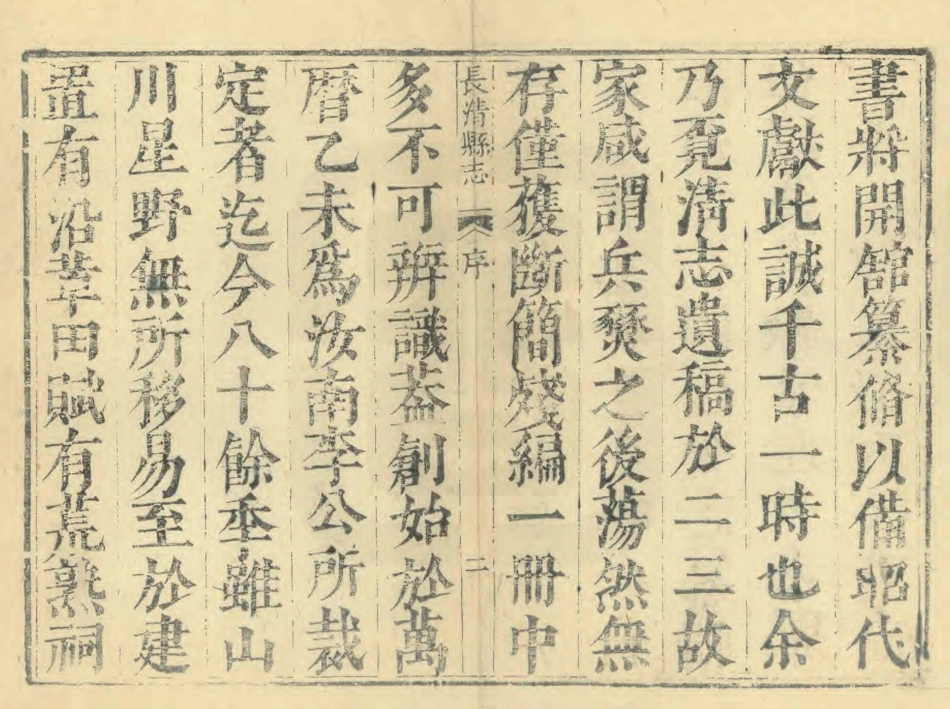 書將開舘纂脩以備昭代
文獻此誠千古一時也余
乃覔清志遺稿於二三故
家咸謂兵燹之後蕩然無
存僅獲斷簡殘編一冊中
長清縣志 序 二
多不可辨識葢創始於萬
曆乙未爲汝南李公所裁
定者迄今八十餘秊雖山
川星野無所移易至於建
置有沿革田賦有荒熟祠